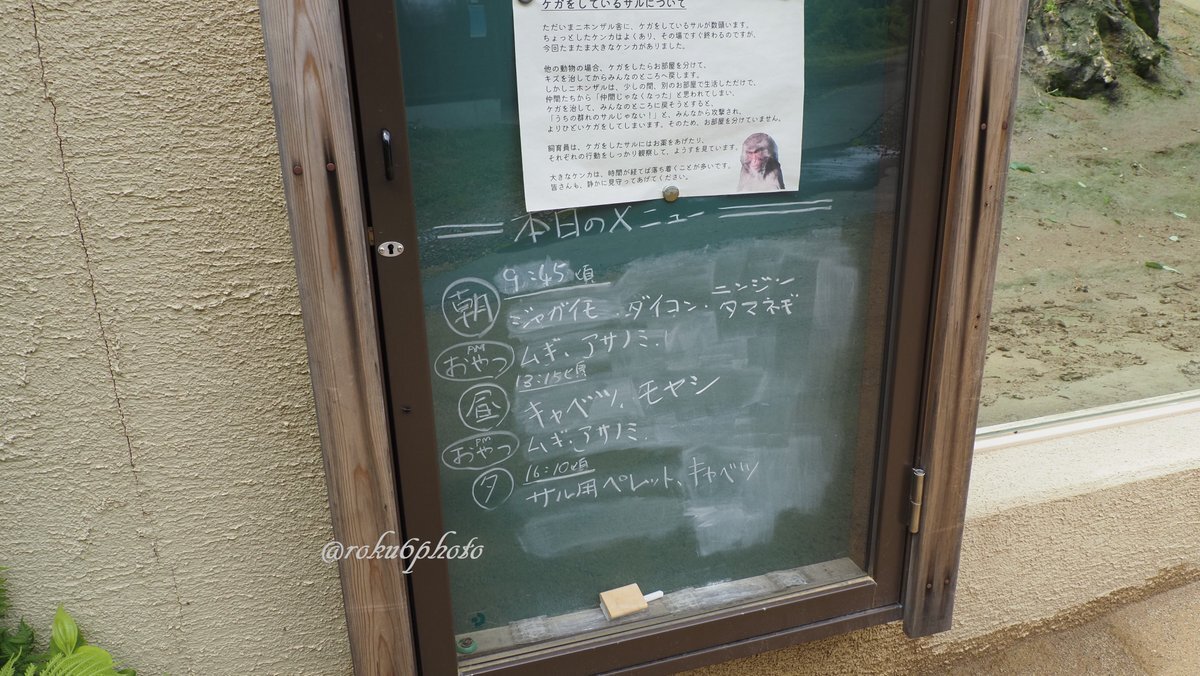 ケガをしているサルについて
ただいまニホンザル舎に、ケガをしているサルが数頭います。
ちょっとしたケンカはよくあり、その場ですぐ終わるのですが、
今回たまたま大きなケンカがありました。
他の動物の場合、ケガをしたらお部屋を分けて、
キズを治してからみんなのところへ戻します。
しかしニホンザルは、少しの間、別のお部屋で生活しただけで、
仲間たちから「仲間じゃなくなった」と思われてしまい、
ケガを治して、みんなのところに戻そうとすると、
「うちの群れのサルじゃない!」と、みんなから攻撃され、
よりひどいケガをしてしまいます。そのため、お部屋を分けていません。
飼育員は、ケガをしたサルにはお薬をあげたり、
それぞれの行動をしっかり観察して、ようすを見ています。
大きなケンカは、時間が経てば落ち着くことが多いです。
皆さんも、静かに見守ってあげてください。
本日のメニュー
朝 9:45頃
ニンジン
ジャガイモ、ダイコン・タマネギ
AM
おやつ ムギ、アサノミ
13:15頃
昼 キャベツ、モヤシ
PM
おやつ ムギ、アサノミ
16:10頃
夕 サル用ペレット、キャベツ
@roku6photo